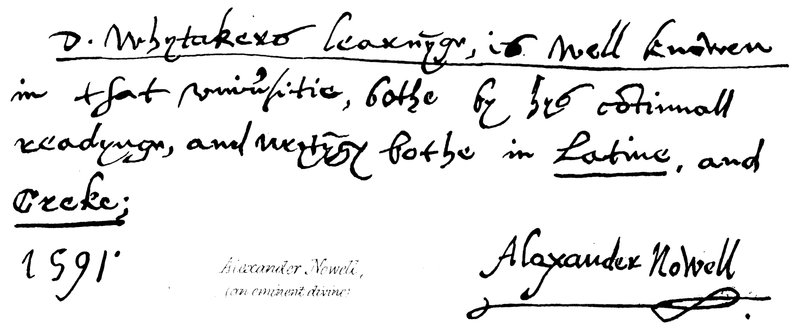 D. Whytakers learnyge, is well knowen
in that univ'sitie, bothe by hys cōtinuall
readynge, and wrytȳg bothe in Latine, and
Greke;
1591.
Alexander Nowell,
(an eminent divine:
Alexander Nowell.